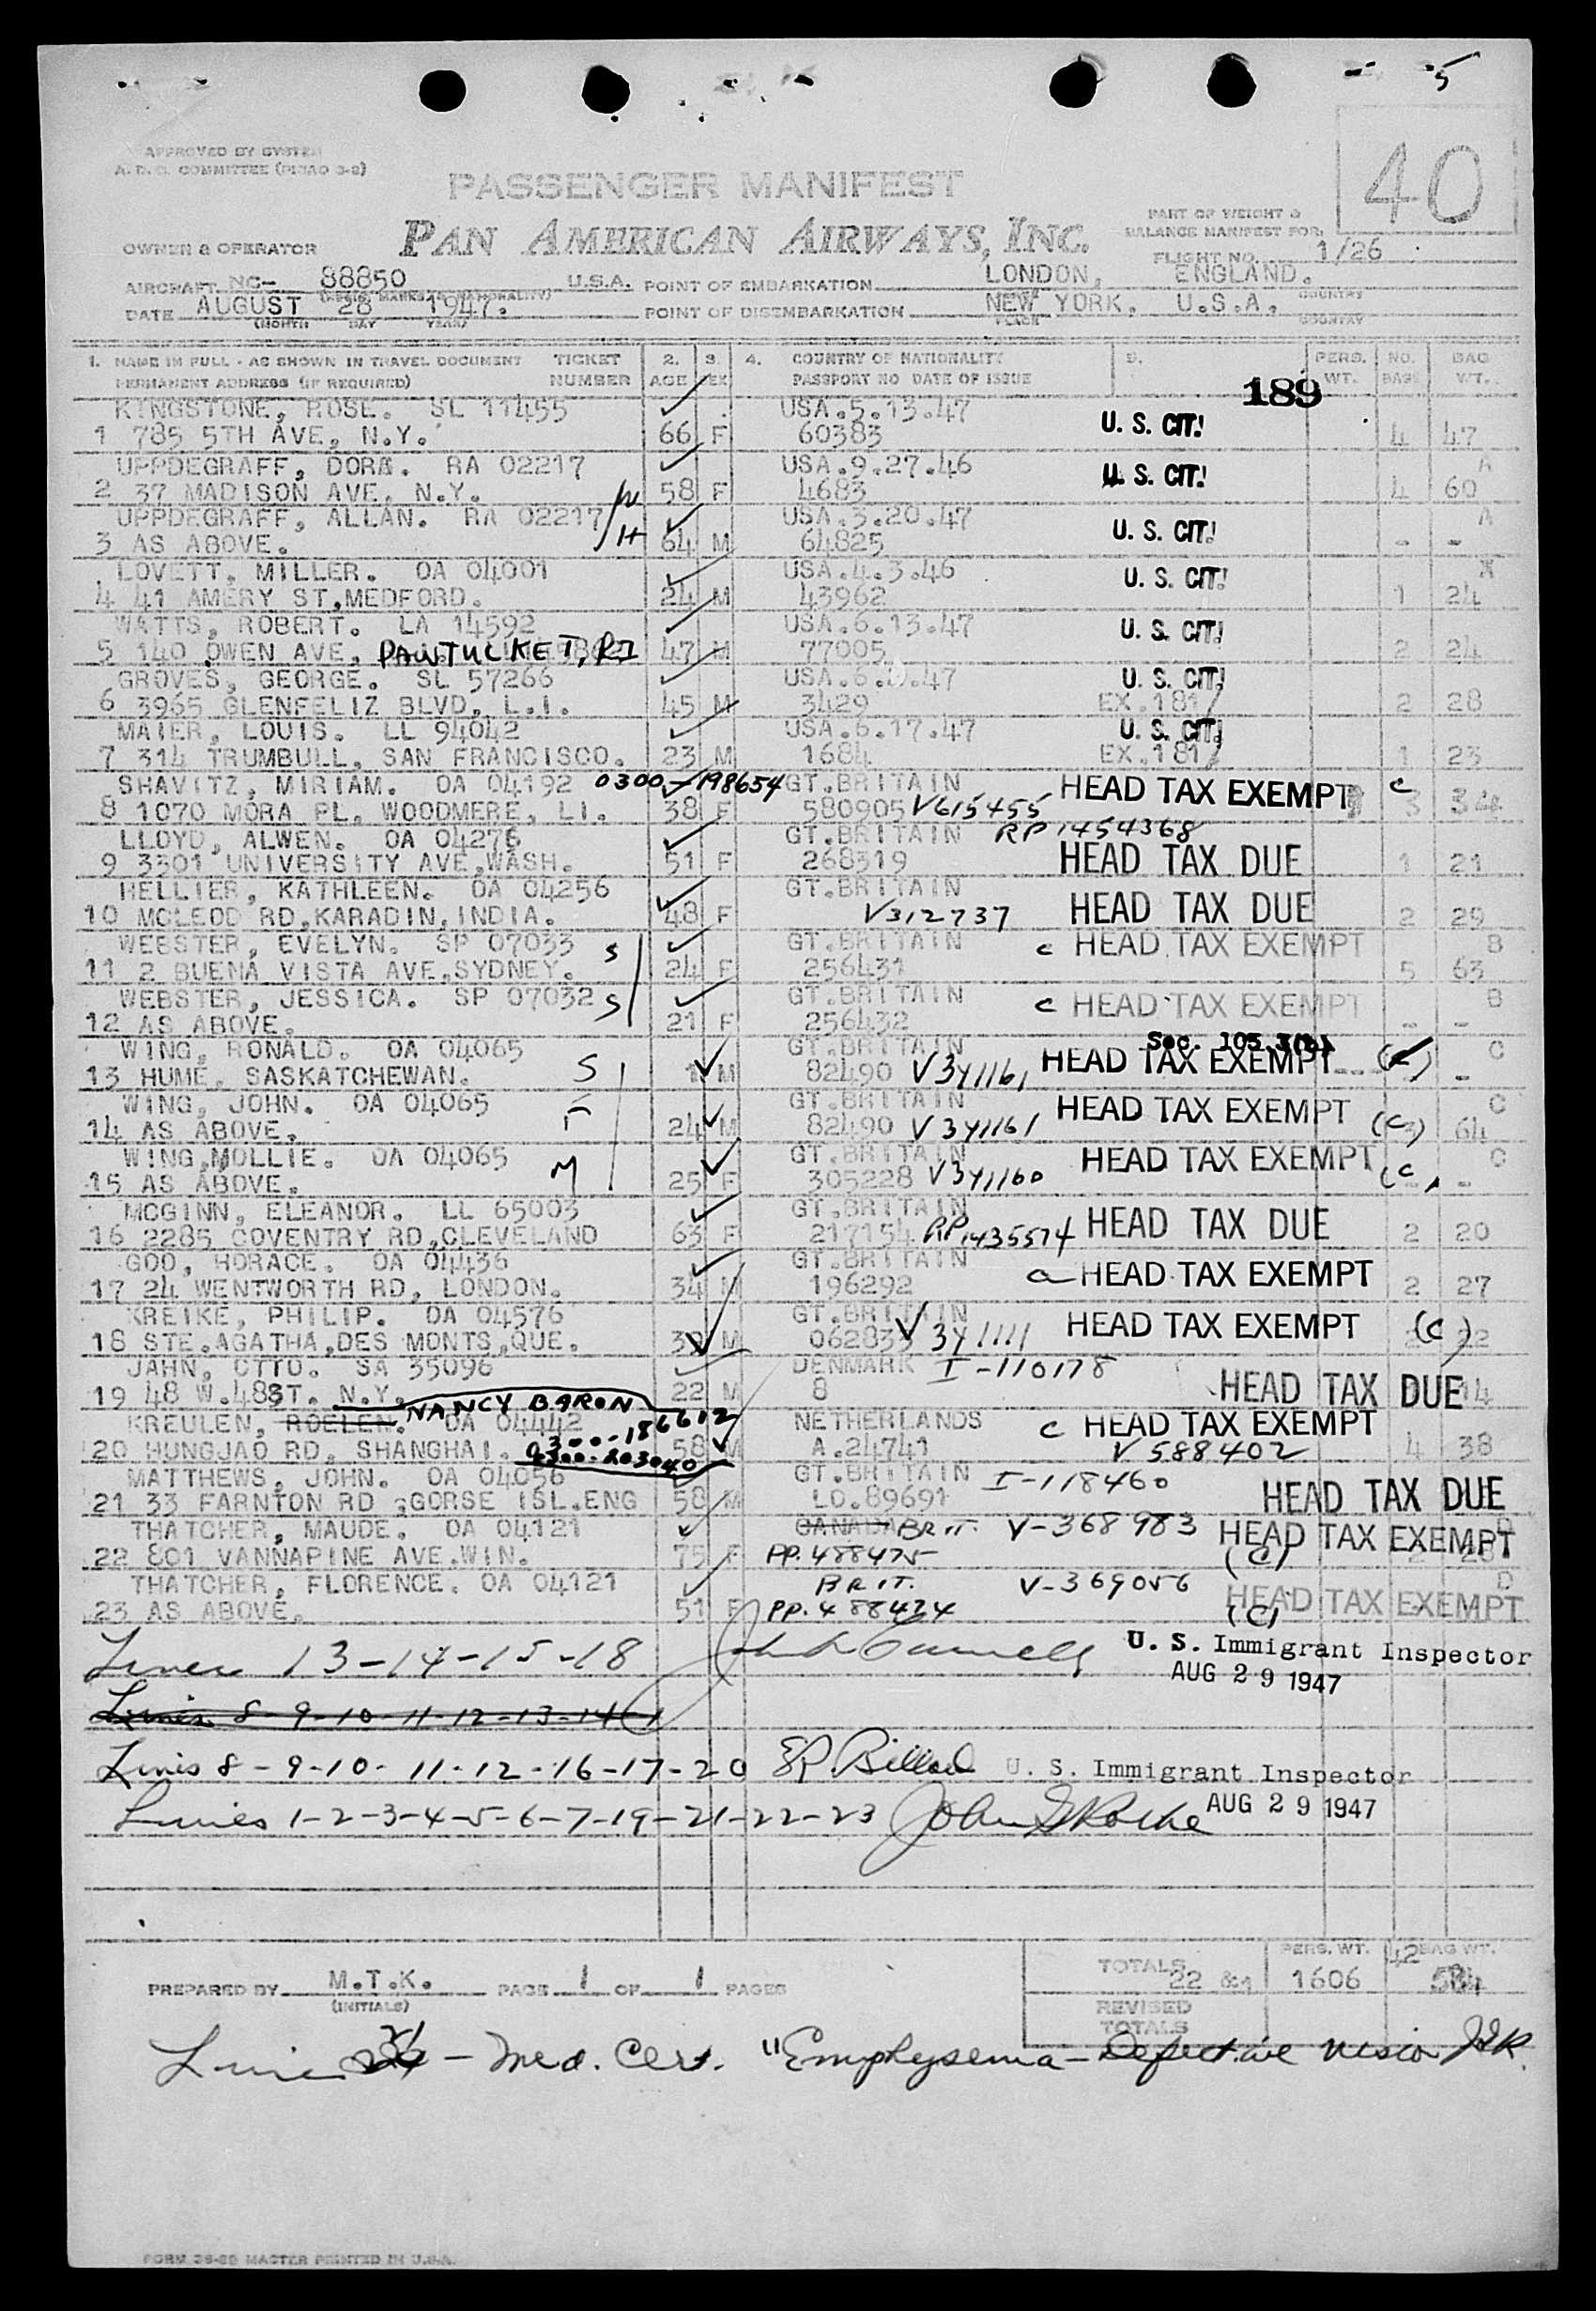 40
APPROVED BY SYSTEM
A.T.C. COMMITTEE (PICAO 3-2)
PASSENGER MANIFEST
PART OF WEIGHT &
BALANCE MANIFEST FOR
OWNER & OPERATOR PAN AMERICAN AIRWAYS, INC.
FLIGHT NO. 1/26
AIRCRAFT NC- 88850 U.S.A. POINT OF EMBARKATION LONDON, ENGLAND.
COUNTRY
DATE AUGUST 28 1947. POINT OF DISEMBARKATION NEW YORK, U.S.A.
(MONTH DAY YEAR) PLACE COUNTRY
1. NAME IN FULL - AS SHOWN IN TRAVEL DOCUMENT TICKET 2. 3. 4. COUNTRY OF NATIONALITY 5. PERS. NO. BAG
PERMANENT ADDRESS (IF REQUIRED) NUMBER AGE SEX PASSPORT NO DATE OF ISSUE WT. BAGS WT.
189
KINGSTONE, ROSE. SL 11455 USA.5.13.47
1 785 5TH AVE, N.Y. 66 F 60383 U. S. CIT. 4 47
UPPDEGRAFF, DORA. RA 02217 USA.9.27.46 A
2 37 MADISON AVE, N.Y. W 58 F 4683 U. S. CIT. 4 60
UPPDEGRAFF, ALLAN. RA 02217 USA.3.20.47 A
3 AS ABOVE. H 64 M 64825 U. S. CIT. - -
LOVETT, MILLER. OA 04001 USA.4.3.46
4 41 AMERY ST,MEDFORD. 24 M 43962 U. S. CIT. 1 24
WATTS, ROBERT. LA 14592 USA.6.13.47
5 140 OWEN AVE, PAWTUCKET, RI 47 M 77005 U. S. CIT. 2 24
GROVES, GEORGE. SL 57266 USA.6. .47 U. S. CIT.
6 3965 GLENFELIZ BLVD, L.I. 45 M 3429 EX.181 2 28
MAIER, LOUIS. LL 94042 USA.6.17.47 U. S. CIT.
7 314 TRUMBULL, SAN FRANCISCO. 23 M 1684 EX.181 1 23
SHAVITZ, MIRIAM. OA 04192 0300-198654 GT.BRITAIN HEAD TAX EXEMPT c
8 1070 MORA PL, WOODMERE, LI. 38 F 580905 V615455 3 34
LLOYD, ALWEN. OA 04276 GT.BRITAIN RP 1454368
9 3301 UNIVERSITY AVE,WASH. 51 F 268319 HEAD TAX DUE 1 21
HELLIER, KATHLEEN. OA 04256 GT.BRITAIN
10 MCLEOD RD,KARADIN,INDIA. 48 F V312737 HEAD TAX DUE 2 29
WEBSTER, EVELYN. SP 07033 S GT.BRITAIN c HEAD TAX EXEMPT B
11 2 BUENA VISTA AVE,SYDNEY. 24 F 256431 5 63
WEBSTER, JESSICA. SP 07032 S GT.BRITAIN c HEAD TAX EXEMPT B
12 AS ABOVE. 21 F 256432 - -
Sec. 105.3(b)
WING, RONALD. OA 04065 GT.BRITAIN C
13 HUME, SASKATCHEWAN. S 1 M 82490 V341161 HEAD TAX EXEMPT (c) -
WING, JOHN. OA 04065 GT.BRITAIN HEAD TAX EXEMPT C
14 AS ABOVE. F 24 M 82490 V341161 (c) 64
WING,MOLLIE. OA 04065 GT.BRITAIN HEAD TAX EXEMPT C
15 AS ABOVE. M 25 F 305228 V341160 (c) -
MCGINN, ELEANOR. LL 65003 GT.BRITAIN
16 2285 COVENTRY RD,CLEVELAND 63 F 217154 RP1435574 HEAD TAX DUE 2 20
GOD, HORACE. OA 04436 GT.BRITAIN
17 24 WENTWORTH RD, LONDON. 34 M 196292 a HEAD TAX EXEMPT 2 27
KREIKE, PHILIP. OA 04576 GT.BRITAIN
18 STE.AGATHA,DES MONTS,QUE. M 062835 V341111 HEAD TAX EXEMPT (c) 2 22
JAHN, OTTO. SA 35096 DENMARK I-110178
19 48 W.48ST. N.Y. 22 M 8 HEAD TAX DUE 14
NANCY BARON
KREULEN, ROELEN. OA 04442 0300-186612 NETHERLANDS c HEAD TAX EXEMPT
20 HUNGJAO RD, SHANGHAI. 0300-203040 58 M A.24741 V588402 4 38
MATTHEWS, JOHN. OA 04056 GT.BRITAIN I-118460
21 33 FARNTON RD ,GORSE ISL.ENG 58 M LO.89691 HEAD TAX DUE
THATCHER, MAUDE. OA 04121 CANADA BRIT. V-368983 HEAD TAX EXEMPT D
22 801 VANNAPINE AVE.WIN. 75 F PP.488475 (C)
THATCHER, FLORENCE. OA 04121 BRIT. V-369056 HEAD TAX EXEMPT D
23 AS ABOVE. 51 F PP.488424 (C)
Lines 13-14-15-18 U. S. Immigrant Inspector
AUG 29 1947
Lines 8-9-10-11-12-13-14
Lines 8-9-10-11-12-16-17-20 U. S. Immigrant Inspector
Lines 1-2-3-4-5-6-7-19-21-22-23 AUG 29 1947
PREPARED BY M.T.K. PAGE 1 OF 1 PAGES
(INITIALS)
TOTALS 22 &1 PERS. WT. 1606 42 BAG WT. 584
REVISED
TOTALS
Line - Med. Cert. "Emphysema - Defective Vision JGR.
FORM 36-89 MASTER PRINTED IN U.S.A.